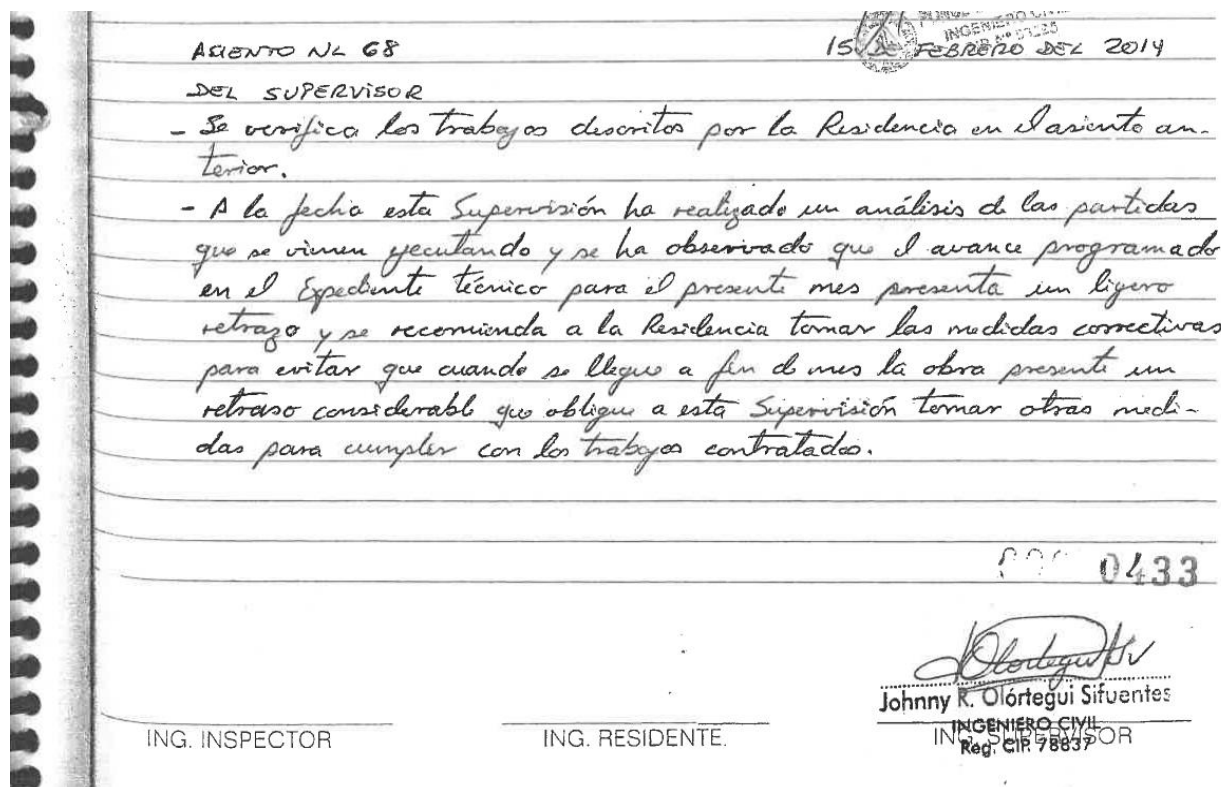 INGENIERO CIVIL
ASIENTO Nº 68
15 DE FEBRERO DEL 2014
DEL SUPERVISOR
- Se verifica los trabajos descritos por la Residencia en el asiento an-
terior.
- A la fecha esta Supervisión ha realizado un análisis de las partidas
que se vienen ejecutando y se ha observado que el avance programado
en el Expediente técnico para el presente mes presenta un ligero
retrazo y se recomienda a la Residencia tomar las medidas correctivas
para evitar que cuando se llegue a fin de mes la obra presente un
retraso considerable que obligue a esta Supervisión tomar otras medi-
das para cumplir con los trabajos contratados.
0433
Johnny R. Olórtegui Sifuentes
INGENIERO CIVIL
Reg. CIP. 78837
ING. INSPECTOR
ING. RESIDENTE.
ING. SUPERVISOR